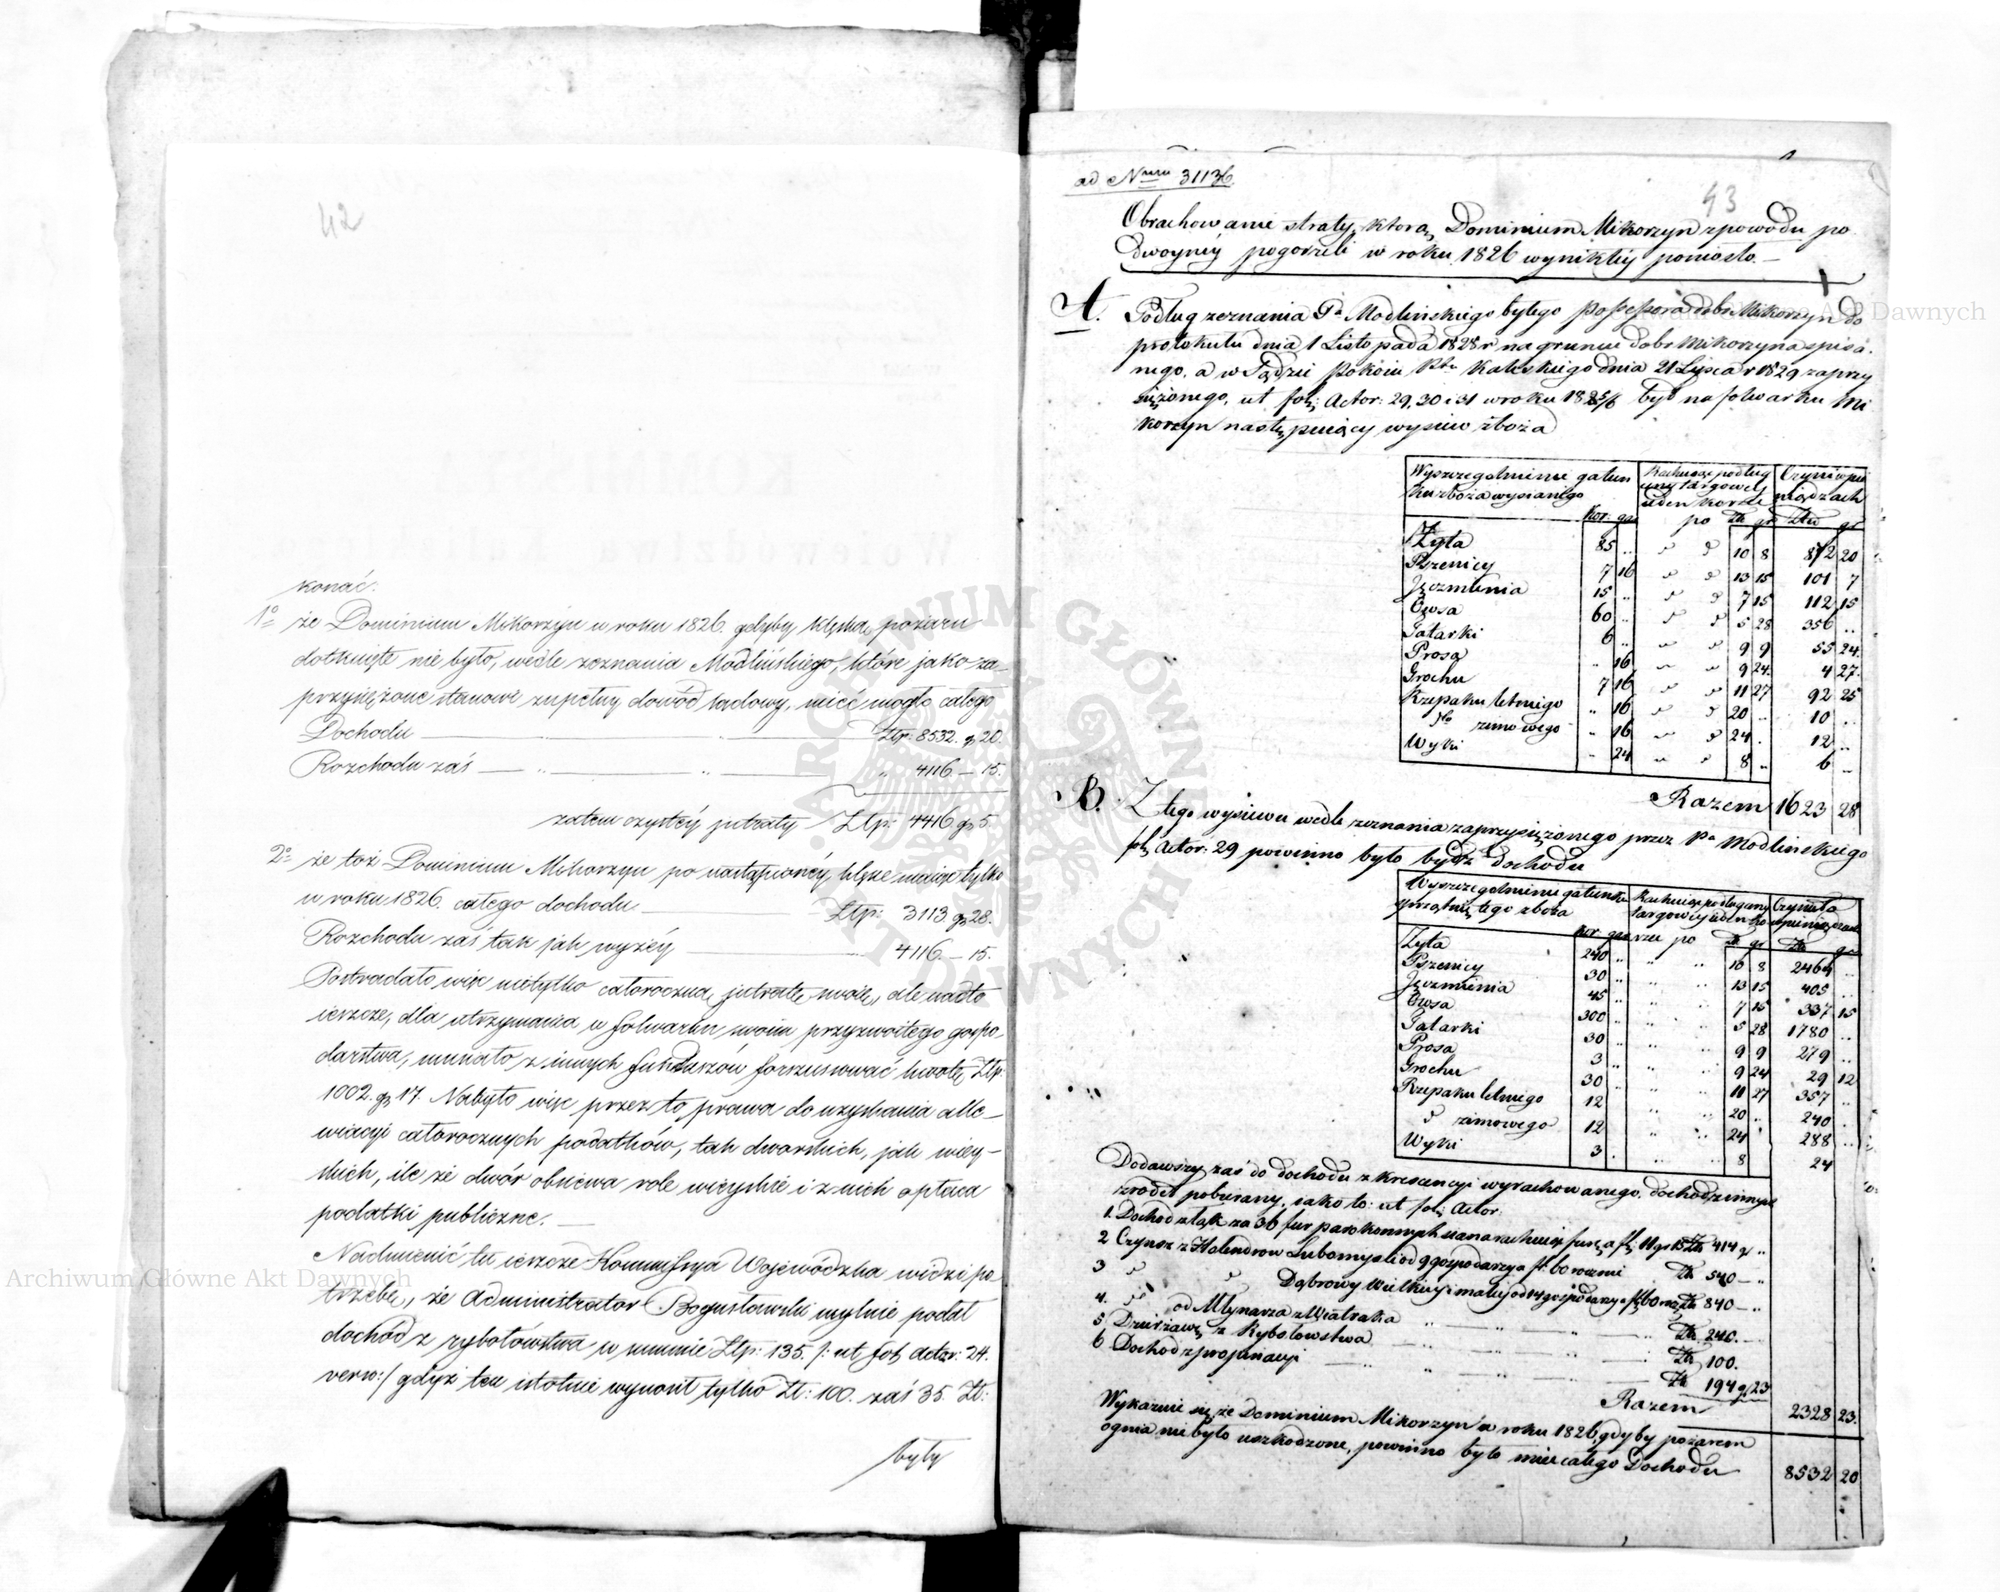 42
konać.
1o że Dominium Mikorzyn w roku 1826. gdyby klęską pożaru
dotknięte nie było, wedle zeznania Modlińskiego, które jako za-
przysiężone stanowi zupełny dowód sądowy, mieć mogło całego
Dochodu — „ — Złp: 8532. gr 20.
Rozchodu zaś — „ — „ — „ 4116 — 15.
zatem czystéy intraty Złp: 4416 gr 5.
2o że toż Dominium Mikorzyn po nastąpionéy klęsce miało tylko
w roku 1826. całego dochodu — Złp: 3113 gr 28.
Rozchodu zaś tak jak wyżéy — 4116. — 15.
Postradało więc nietylko całoroczną intratę swoię, ale nadto
ieszcze, dla utrzymania w folwarku swoim przyzwoitego gospo-
darstwa, musiało z innych funduszów forszusować kwotę Złp:
1002. gr 17. Nabyło więc przez to prawa do uzyskania alle-
wiacyi całorocznych podatków, tak dworskich, jak wiey-
skich, ile że dwór obsiewa role wieyskie i z nich opłaca
podatki publiczne. —
Nadmienić tu ieszcze Kommissya Wojewódzka widzi po
trzebę, że Administrator Bogusławski mylnie podał
dochód z rybołówstwa w summie Złp: 135. /: ut fol. Actor: 24.
verso:/ gdyż ten istotnie wynosił tylko Zł: 100. zaś 35. Zł:
były
ad Num 31136.
43
Obrachowanie straty, którą Dominium Mikorzyn z powodu po
dwoynéy pogorzeli w roku 1826 wynikłéy poniosło. —
A. Podług zeznania Pa Modlińskiego byłego Possessora dobr Mikorzyn do
protokułu dnia 1 Listopada 1828 r na gruncie dobr Mikorzyna spisa-
nego, a w Sądzie Pokoiu Ptu Kaliskiego dnia 21 Lipca r 1829 zaprzy
siężonego, ut fol: Actor: 29, 30 i 31 w roku 1825/6 był na folwarku Mi
korzyn następuiący wysiew zboża
Wyszczególnienie gatun Rachuiąc podług Czyni w pie
ku zboża wysianego ceny targowéy niądzach
ieden korzec
Kor: gar po Zł gr Złt gr
Żyta 85 .. 10 8 872 20
Pszenicy 7 16 13 15 101 7
Jęczmienia 15 .. 7 15 112 15
Owsa 60 .. 5 28 356 ..
Tatarki 6 .. 9 9 55 24.
Prosa .. 16 9 24. 4 27.
Grochu 7 16 11 27 92 25
Rzepaku letniego .. 16 20 .. 10 ..
do zimowego .. 16 24 . 12 ..
Wyki .. 24 8 .. 6 ..
Razem 1623 28
B. Z tego wysiewu wedle zeznania zaprzysiężonego przez Pa Modlińskiego
fol: Actor: 29 powinno było bydź dochodu
Wyszczególnienie gatunku Rachuiąc podług ceny Czyniło
sprzątniętego zboża targowéy ieden ko w pieniądzach
Kor gar rzec po Zł gr Zł gr
Żyta 240 .. 10 8 2464 ..
Pszenicy 30 .. 13 15 405 ..
Jęczmienia 45 .. 7 15 337 15
Owsa 300 .. 5 28 1780 ..
Tatarki 30 .. 9 9 279 ..
Prosa 3 .. 9 24 29 12
Grochu 30 .. 11 27 357 ..
Rzepaku letniego 12 20 .. 240 .
d zimowego 12 24 288 ..
Wyki 3 . 8 24
Dodawszy zaś do dochodu z krescencyi wyrachowanego, dochod z innych
zrodeł pobierany, iako to: ut fol: Actor:
1. Dochod z łąk za 36 fur parokonnych siana rachuiąc furę a fl: 11 gr 15 Zł 414 gr ..
2 Czynsz z Holendrow Lubomyśli od 9 gospodarzy a fl: 60 rocznie Zł 540 — ..
3 d d Dąbrowy Wielkiey i małey od 14 gospodarzy a fl 60 Zł 840 — ..
4. d od Młynarza z Wiatraka Zł 240. —
5 Dzierżawę z Rybołowstwa Zł 100.
6 Dochod z propinacyi Zł 194 gr 23
Razem 2328 23.
Wykazuie się, że Dominium Mikorzyn w roku 1826, gdyby pożarem
ognia nie było uszkodzone, powinno było mieć całego Dochodu 8532 20
Archiwum Główne Akt Dawnych
Archiwum Główne Akt Dawnych
ARCHIWUM GŁÓWNE AKT DAWNYCH